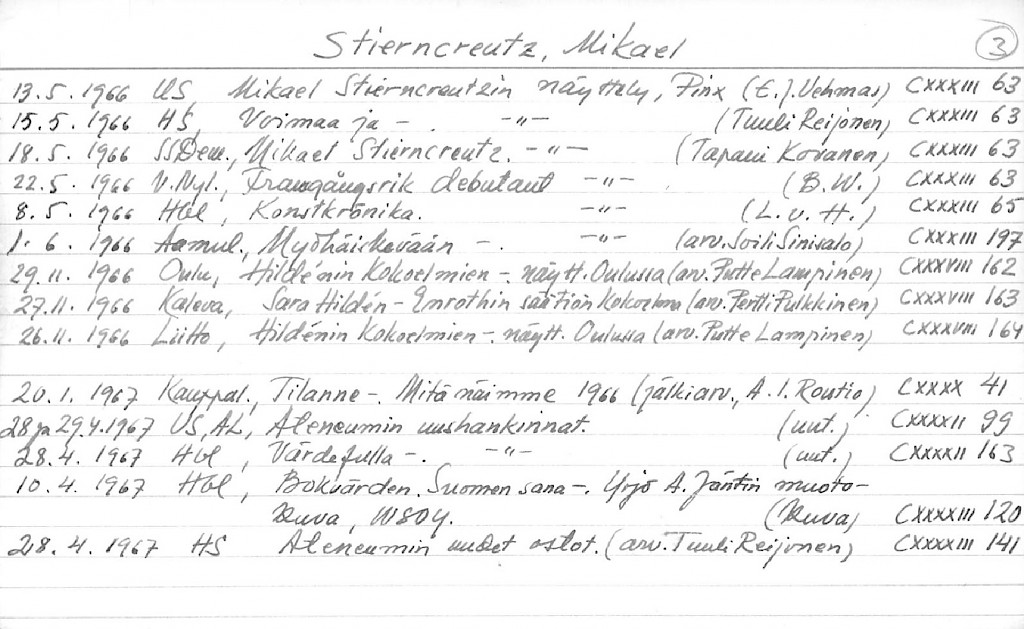 Stierncreutz, Mikael 3
13.5.1966 US, Mikael Stierncreutzin näyttely, Pinx (E.J. Vehmas) CXXXIII 63
15.5.1966 HS, Voimaa ja - . -"- (Tuuli Reijonen) CXXXIII 63
18.5.1966 SSDem., Mikael Stierncreutz. -"- (Tapani Kovanen) CXXXIII 63
22.5.1966 V.Nyl., Framgångsrik debutant -"- (B.W.) CXXXIII 63
8.5.1966 Hbl, Konstkrönika. -"- (L.v.H.) CXXXIII 65
1.6.1966 Aamul., Myöhäiskevään -. -"- (arv. Soili Sinisalo) CXXXIII 197
29.11.1966 Oulu, Hildénin Kokoelmien -. näytt. Oulussa (arv. Putte Lampinen) CXXXVIII 162
27.11.1966 Kaleva, Sara Hildén - Enrothin säätiön Kokoelma (arv. Pertti Pulkkinen) CXXXVIII 163
26.11.1966 Liitto, Hildénin Kokoelmien -. näytt. Oulussa (arv. Putte Lampinen) CXXXVIII 164
20.1.1967 Kauppal., Tilanne -. Mitä näimme 1966 (jälkiarv., A.I. Routio) CXXXX 41
28 ja 29.4.1967 US, AL, Ateneumin uushankinnat. (uut.) CXXXXII 99
28.4.1967 Hbl, Värdefulla -. -"- (uut.) CXXXXII 163
10.4.1967 Hbl, Bokvärden. Suomen sana -. Yrjö A. Jäntin muoto-
kuva, WSOY. (Kuva) CXXXXIII 120
28.4.1967 HS Ateneumin uudet ostot. (arv. Tuuli Reijonen) CXXXXIII 141